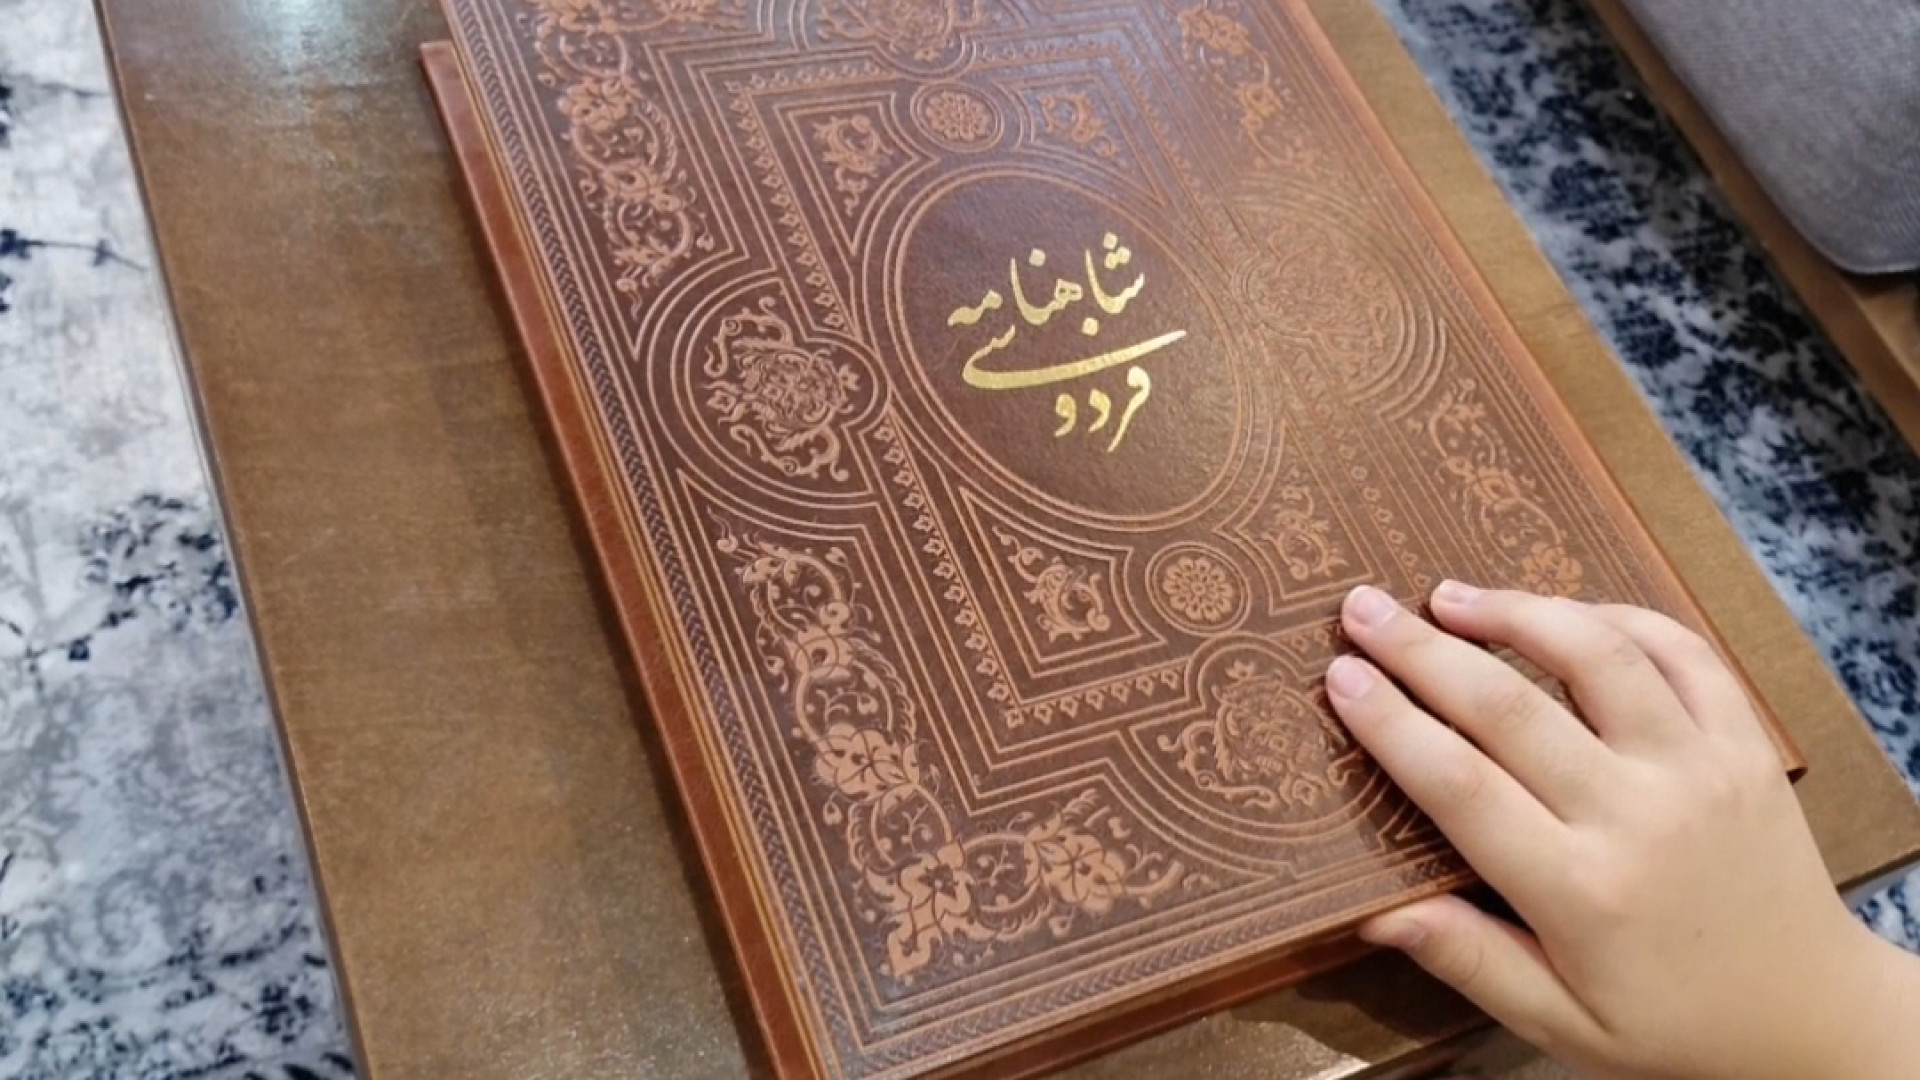 شاهنامه
فردوسی